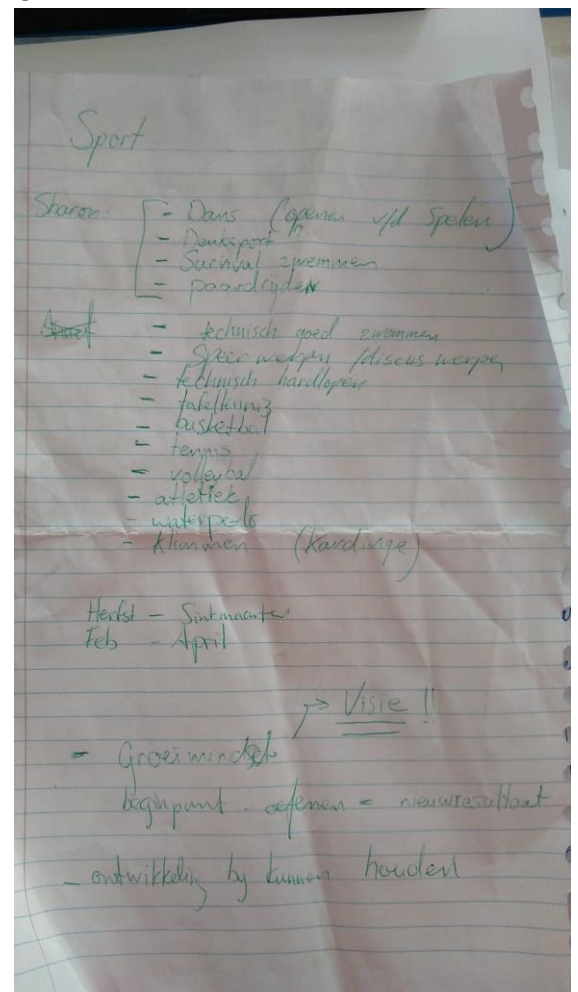 Sport
Sharon. - Dans (openen v/d Spelen)
- Denksport
- Survival zwemmen
- paardrijden
- technisch goed zwemmen
- Speerwerpen /discus werpen
- technisch hardlopen
- tafeltennis
- basketbal
- tennis
- volleybal
- atletiek
- waterpolo
- klimmen (Kardinge)
Herfst - Sintmaarten
Feb - April
→ Visie !!
- Groeimindset
beginpunt - oefenen = nieuwresultaat
- ontwikkeling by kunnen houden